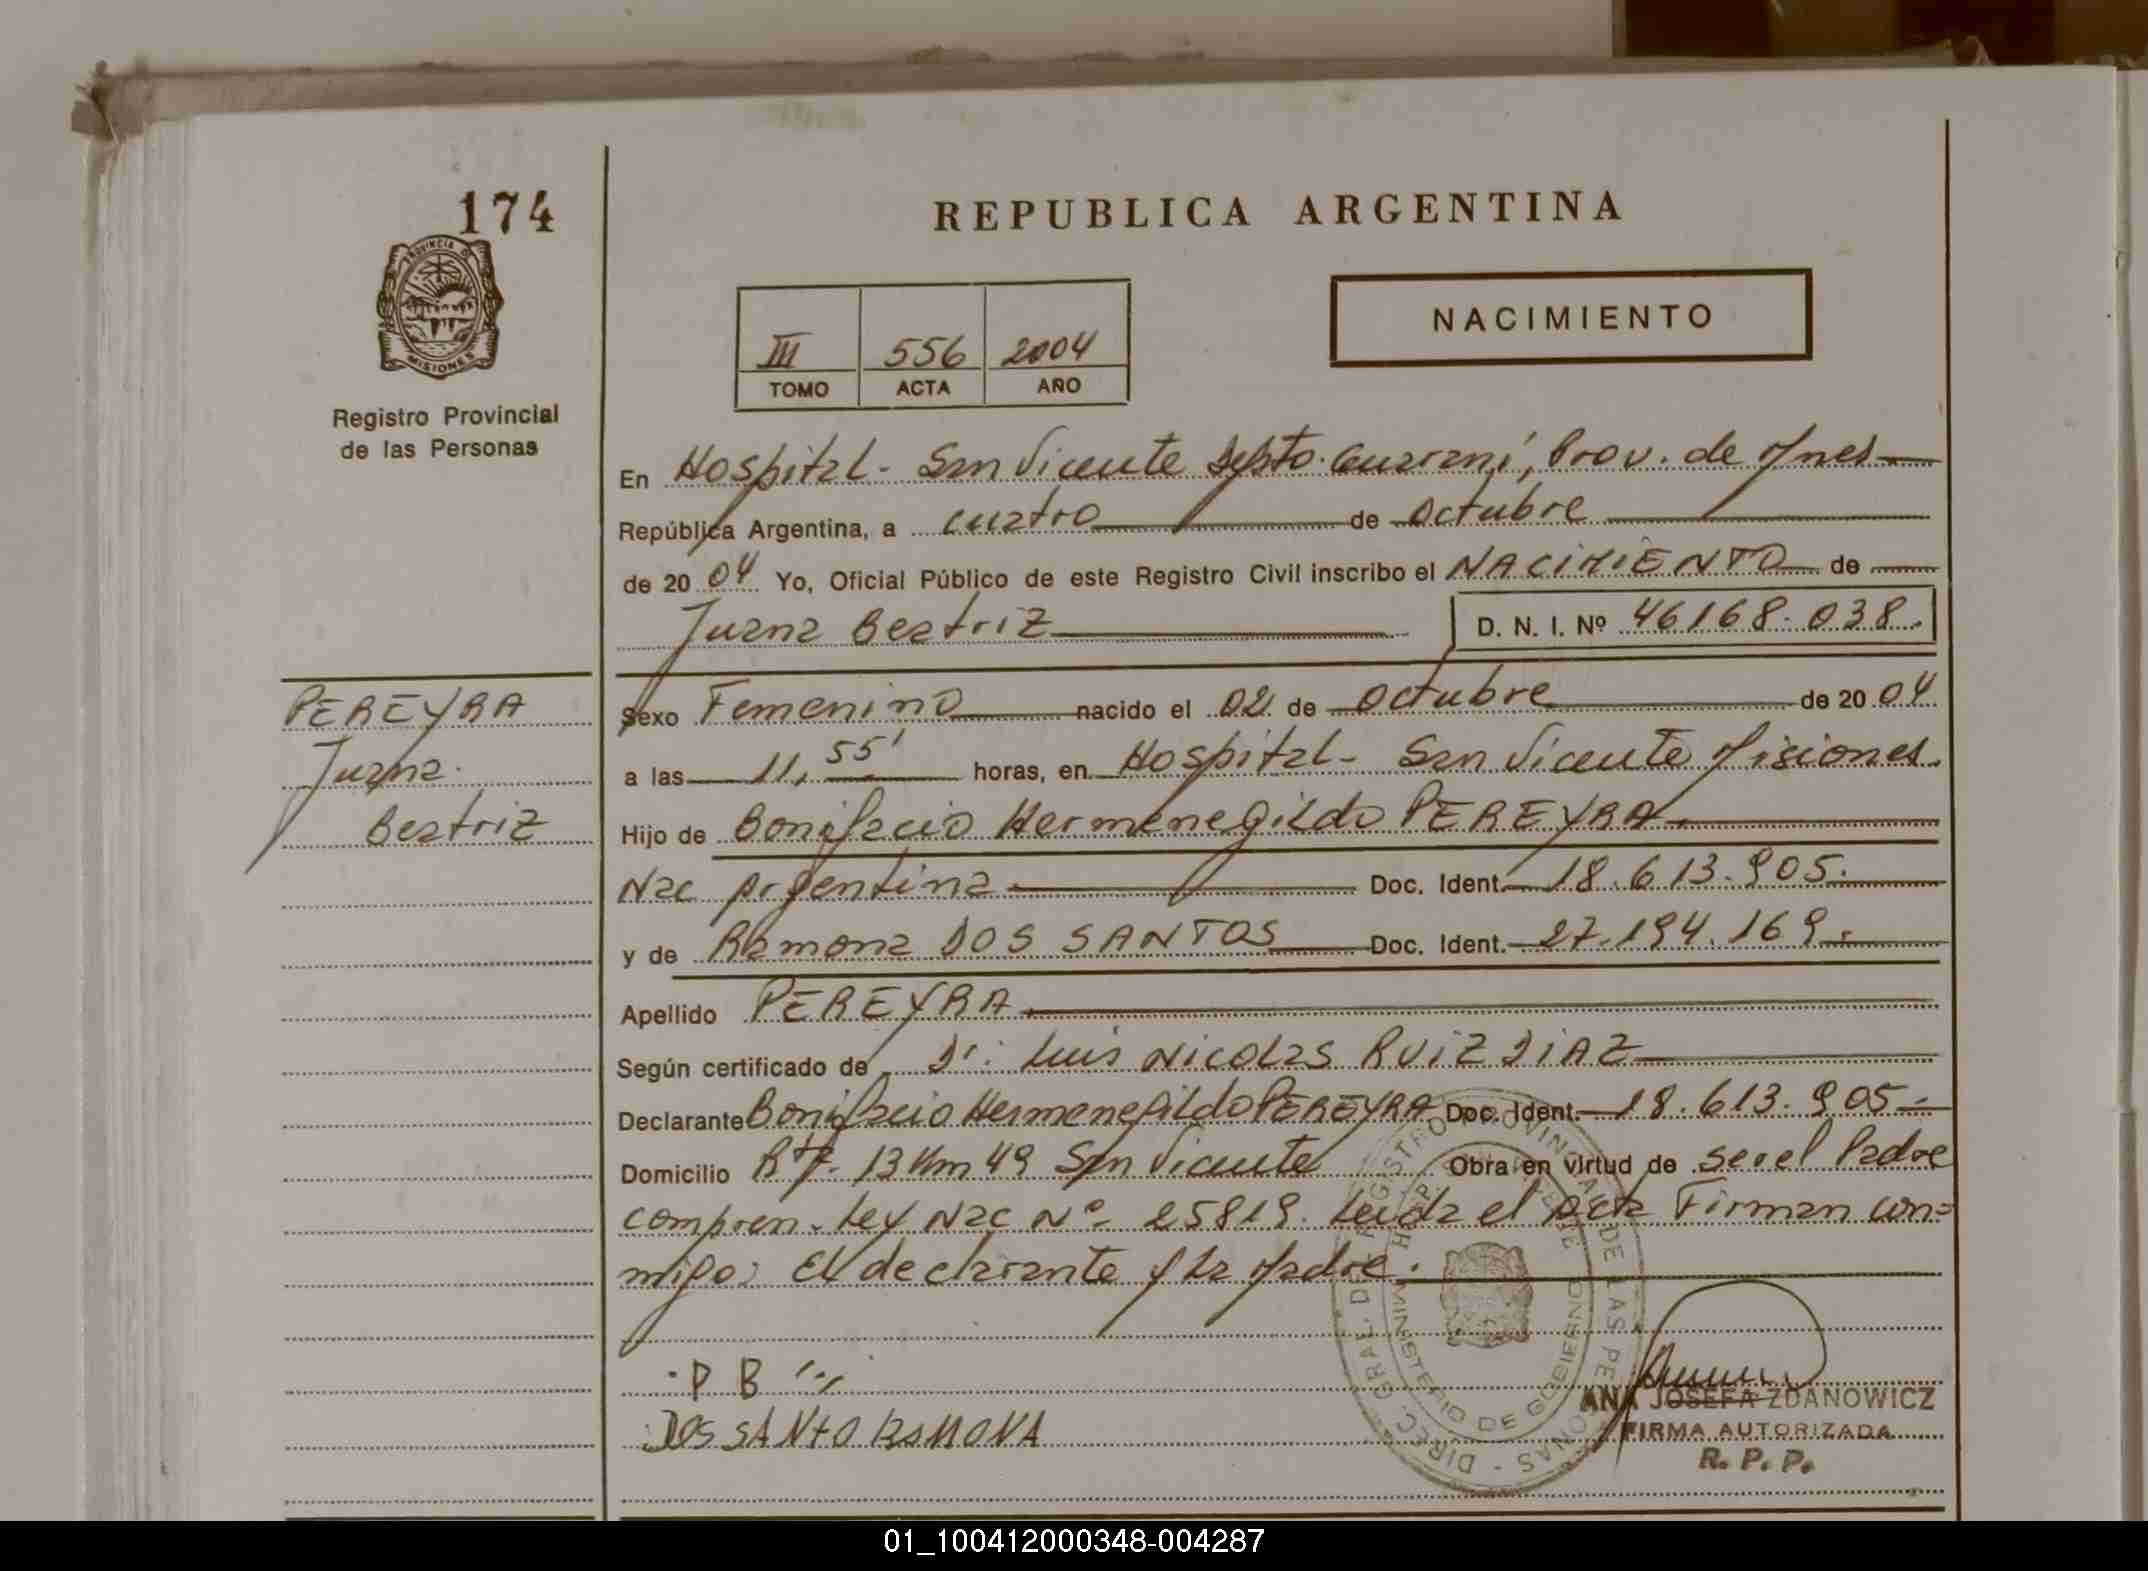 174
PROVINCIA DE
MISIONES
Registro Provincial
de las Personas
REPUBLICA ARGENTINA
III 556 2004
TOMO ACTA AÑO
NACIMIENTO
En Hospital - San Vicente Dpto. Guaraní, Prov. de Mnes
República Argentina, a cuatro de octubre
de 2004 Yo, Oficial Público de este Registro Civil inscribo el NACIMIENTO de
Juana Beatriz
D. N. I. Nº 46168.038.
PEREYRA
Juana
Beatriz
Sexo Femenino nacido el 02 de octubre de 2004
a las 11,55' horas, en Hospital - San Vicente Misiones.
Hijo de Bonifacio Hermenegildo PEREYRA
Nac Argentina Doc. Ident. 18.613.905.
y de Ramona DOS SANTOS Doc. Ident. 27.194.169.
Apellido PEREYRA
Según certificado de Dr. Luis Nicolas RUIZ DIAZ
Declarante Bonifacio Hermenegildo PEREYRA Doc. Ident. 18.613.905
Domicilio Rta. 13 Km 49 San Vicente Obra en virtud de ser el Padre
compren. Ley Nac Nº 25819. Leida el Acta Firman con=
migo: El declarante y la Madre.
P B
DOS SANtO RAMONA
DIREC. GRAL. DEL REGISTRO PROVINCIAL DE LAS PERSONAS
MINISTERIO DE GOBIERNO
ANA JOSEFA ZDANOWICZ
FIRMA AUTORIZADA
R. P. P.
01_100412000348-004287